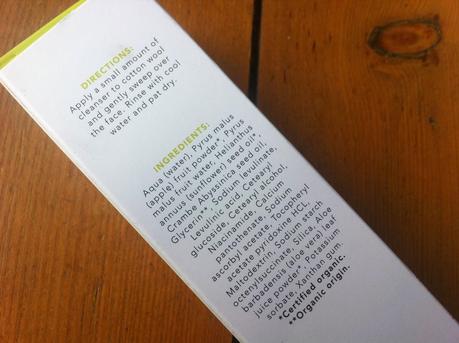 DIRECTIONS:
Apply a small amount of
cleanser to cotton wool
and gently sweep over
the face. Rinse with cool
water and pat dry.
INGREDIENTS:
Aqua (water), Pyrus malus
(apple) fruit powder*, Pyrus
malus fruit water, Helianthus
annuus (sunflower) seed oil*,
Crambe Abyssinica seed oil,
Glycerin**, Sodium levulinate,
Levulinic acid, Cetearyl
glucoside, Cetearyl alcohol,
Niacinamide, Calcium
pantothenate, Sodium
ascorbyl acetate, Tocopheryl
acetate pyridoxine HCL,
Maltodextrin, Sodium starch
octenylsuccinate, Silica, Aloe
barbadensis (aloe vera) leaf
juice powder*, Potassium
sorbate, Xanthan gum.
*Certified organic.
**Organic origin.